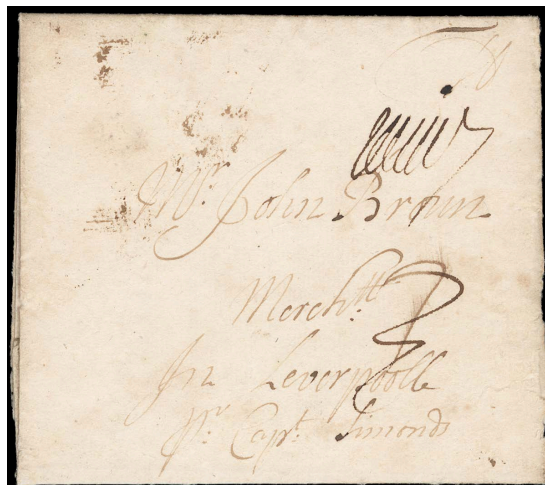 Mr. John Brown
Merchtt.
In Leverpoolle
pr. Capt. Simonds